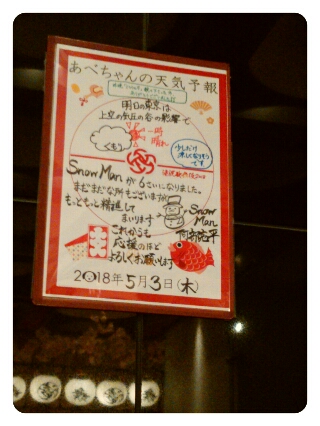 あべちゃんの天気予報
明日の東京は
上空の気圧の谷の影響で
くもり
一時
晴れ
少しだけ
涼しくなりそう
です
Snow Manが6さいになりました。
まだまだな所もございますが
もっともっと精進して
まいります
Snow
Man
阿部亮平
これからも
応援のほど
よろしくお願いします
2018年5月3日(木)